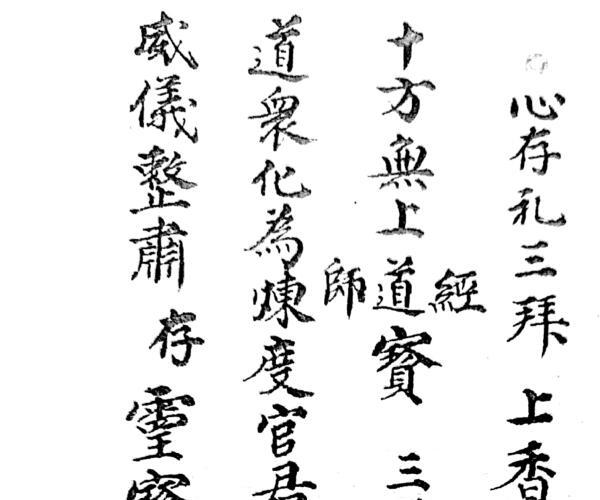 心存礼三拜　上香
十方無上道經師寶　三
道衆化為煉度官君
威儀整肅　存靈寶